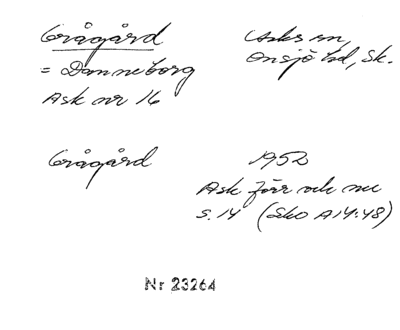 Grågård
Asks sn,
= Danneborg
Onsjö hd, Sk.
Ask nr 16
Grågård
1952
Ask förr och nu
s. 14 (Sko A14:48)
Nr 23264